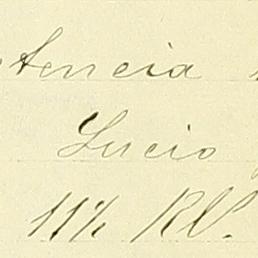 tencia
Lucio
11½ Rl.